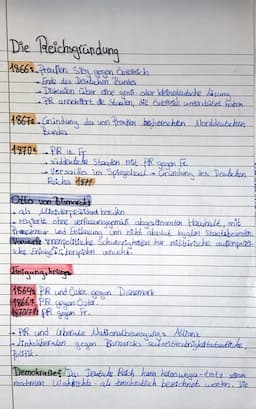 Die Reichsgründung
1866: Preußen Sieg gegen Österreich
→ Ende des Deutschen Bundes
→ Diskussion über eine groß- oder kleindeutsche Lösung
→ PR annektiert die Staaten, die Österreich unterstützt haben
1867: Gründung des von Preußen beherrschten Norddeutschen
Bundes
1870: → PR vs. Fr.
→ süddeutsche Staaten mit PR gegen Fr.
→ Versailles im Spiegelsaal → Gründung des Deutschen
Reichs 1871
Otto von Bismarck:
→ als Ministerpräsident berufen
→ regierte ohne verfassungsgemäß abgestimmten Haushalt, mit
und Entlassung von nicht absolut loyalen Staatsbeamten
Einigungskriege
1864: PR und Öster. gegen Dänemark
1866: PR gegen Öster.
1870/71: PR gegen Fr.
→ PR und liberale Nationalbewegung: Allianz
→ Linksliberalen gegen Bismarcks
Politik
Demokratie? Das Deutsche Reich kann keineswegs - trotz eines
modernen Wahlrechts - als demokratisch bezeichnet werden. Die